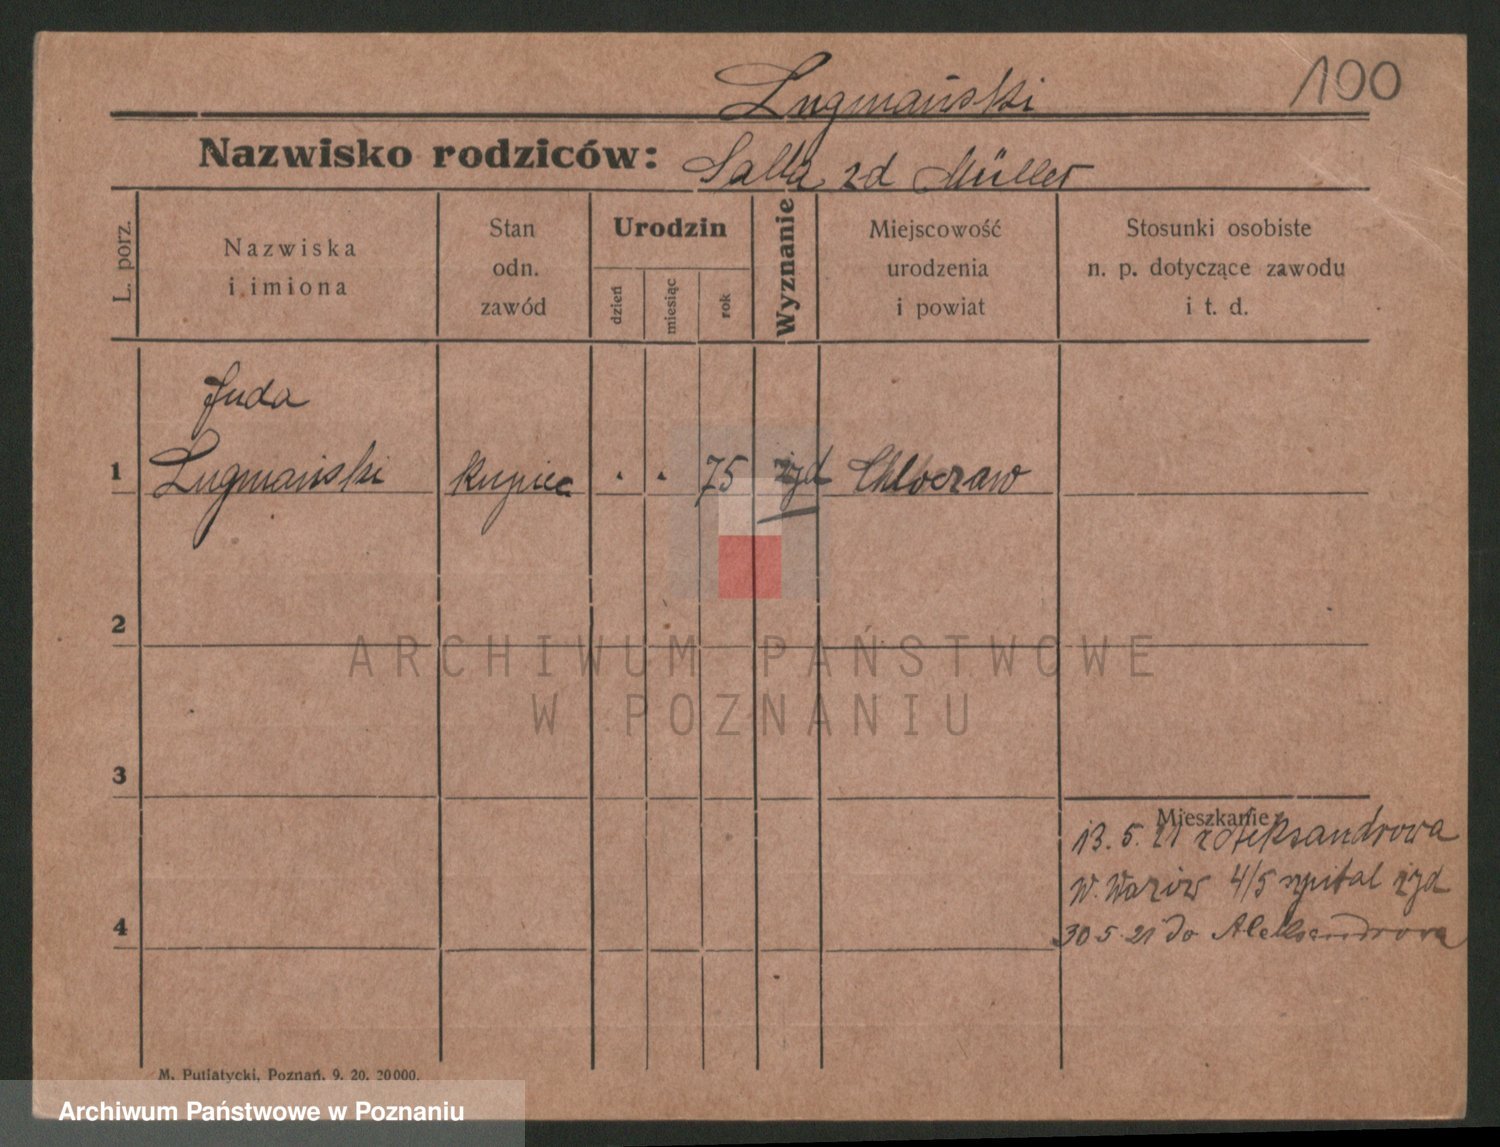 100
Lugmański
Nazwisko rodziców: Salla zd Müller
L. porz.
Nazwiska
i imiona
Stan
odn.
zawód
Urodzin
dzień
miesiąc
rok
Wyznanie
Miejscowość
urodzenia
i powiat
Stosunki osobiste
n. p. dotyczące zawodu
i t. d.
Juda
1 Lugmański kupiec . . 75 żyd Chloczaw
2
ARCHIWUM PAŃSTWOWE
W POZNANIU
3
Mieszkanie
13. 5. 21 z Aleksandrowa
W. 4/5 szpital żyd
4
30 5. 21 do Aleksandrowa
M. Putiatycki, Poznań. 9. 20. 20000.
Archiwum Państwowe w Poznaniu